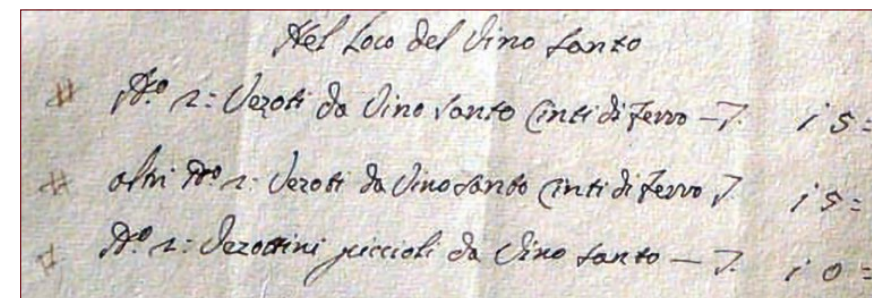 Nel Loco del Vino Santo
# N.º 2: Vezoti da Vino Santo Cinti di ferro — 7. i 5 =
# altri N.º 2: Vezoti da Vino Santo Cinti di ferro 7. i 5 =
# N.º 2: Vezottini piccioli da Vino Santo — 7. i 0 =